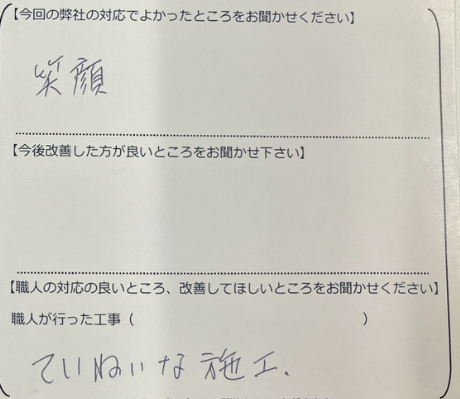 【今回の弊社の対応でよかったところをお聞かせください】
笑顔
【今後改善した方が良いところをお聞かせ下さい】
【職人の対応の良いところ、改善してほしいところをお聞かせください】
職人が行った工事（ ）
ていねいな施工.